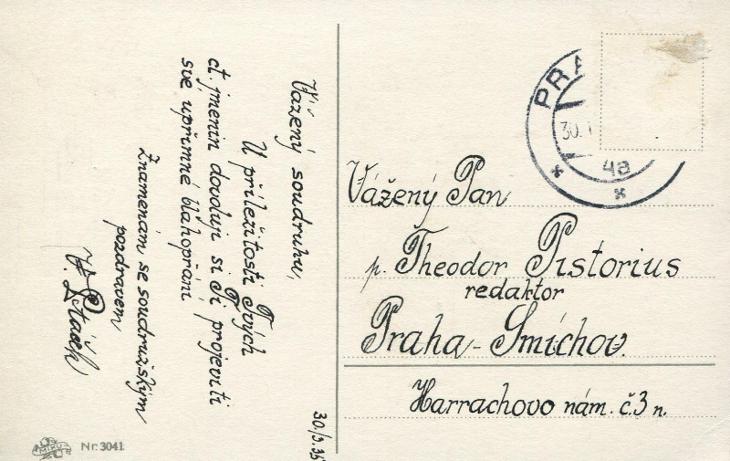 Vážený soudruhu,
U příležitosti Tvých
ct. jmenin dovoluji si Ti projeviti
své upřímné blahopřání
Znamenám se soudružským
pozdravem
30/3.35
Vážený Pan
p. Theodor Pistorius
redaktor
Praha-Smíchov.
Harrachovo nám. č.3 n.
PRA
30.
4a
Nr. 3041